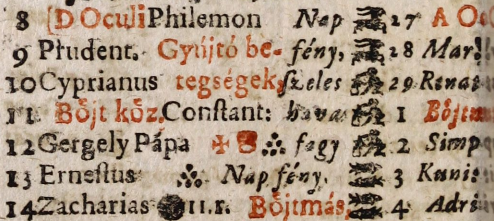 8 D Oculi Philemon Nap 27 A Oc
9 Prudent. Gyújtó be- fény, 28 Mar.
10 Cyprianus tegségek, ſzeles 29 Renat
11. Bőjt kőz. Conſtant: hava 1 Bőjt
12 Gergely Pápa ✠ fagy 2 Simp
13 Erneſtus Nap fény. 3 Kunis
14 Zacharias 11.r. Bőjtmás, 4 Adri